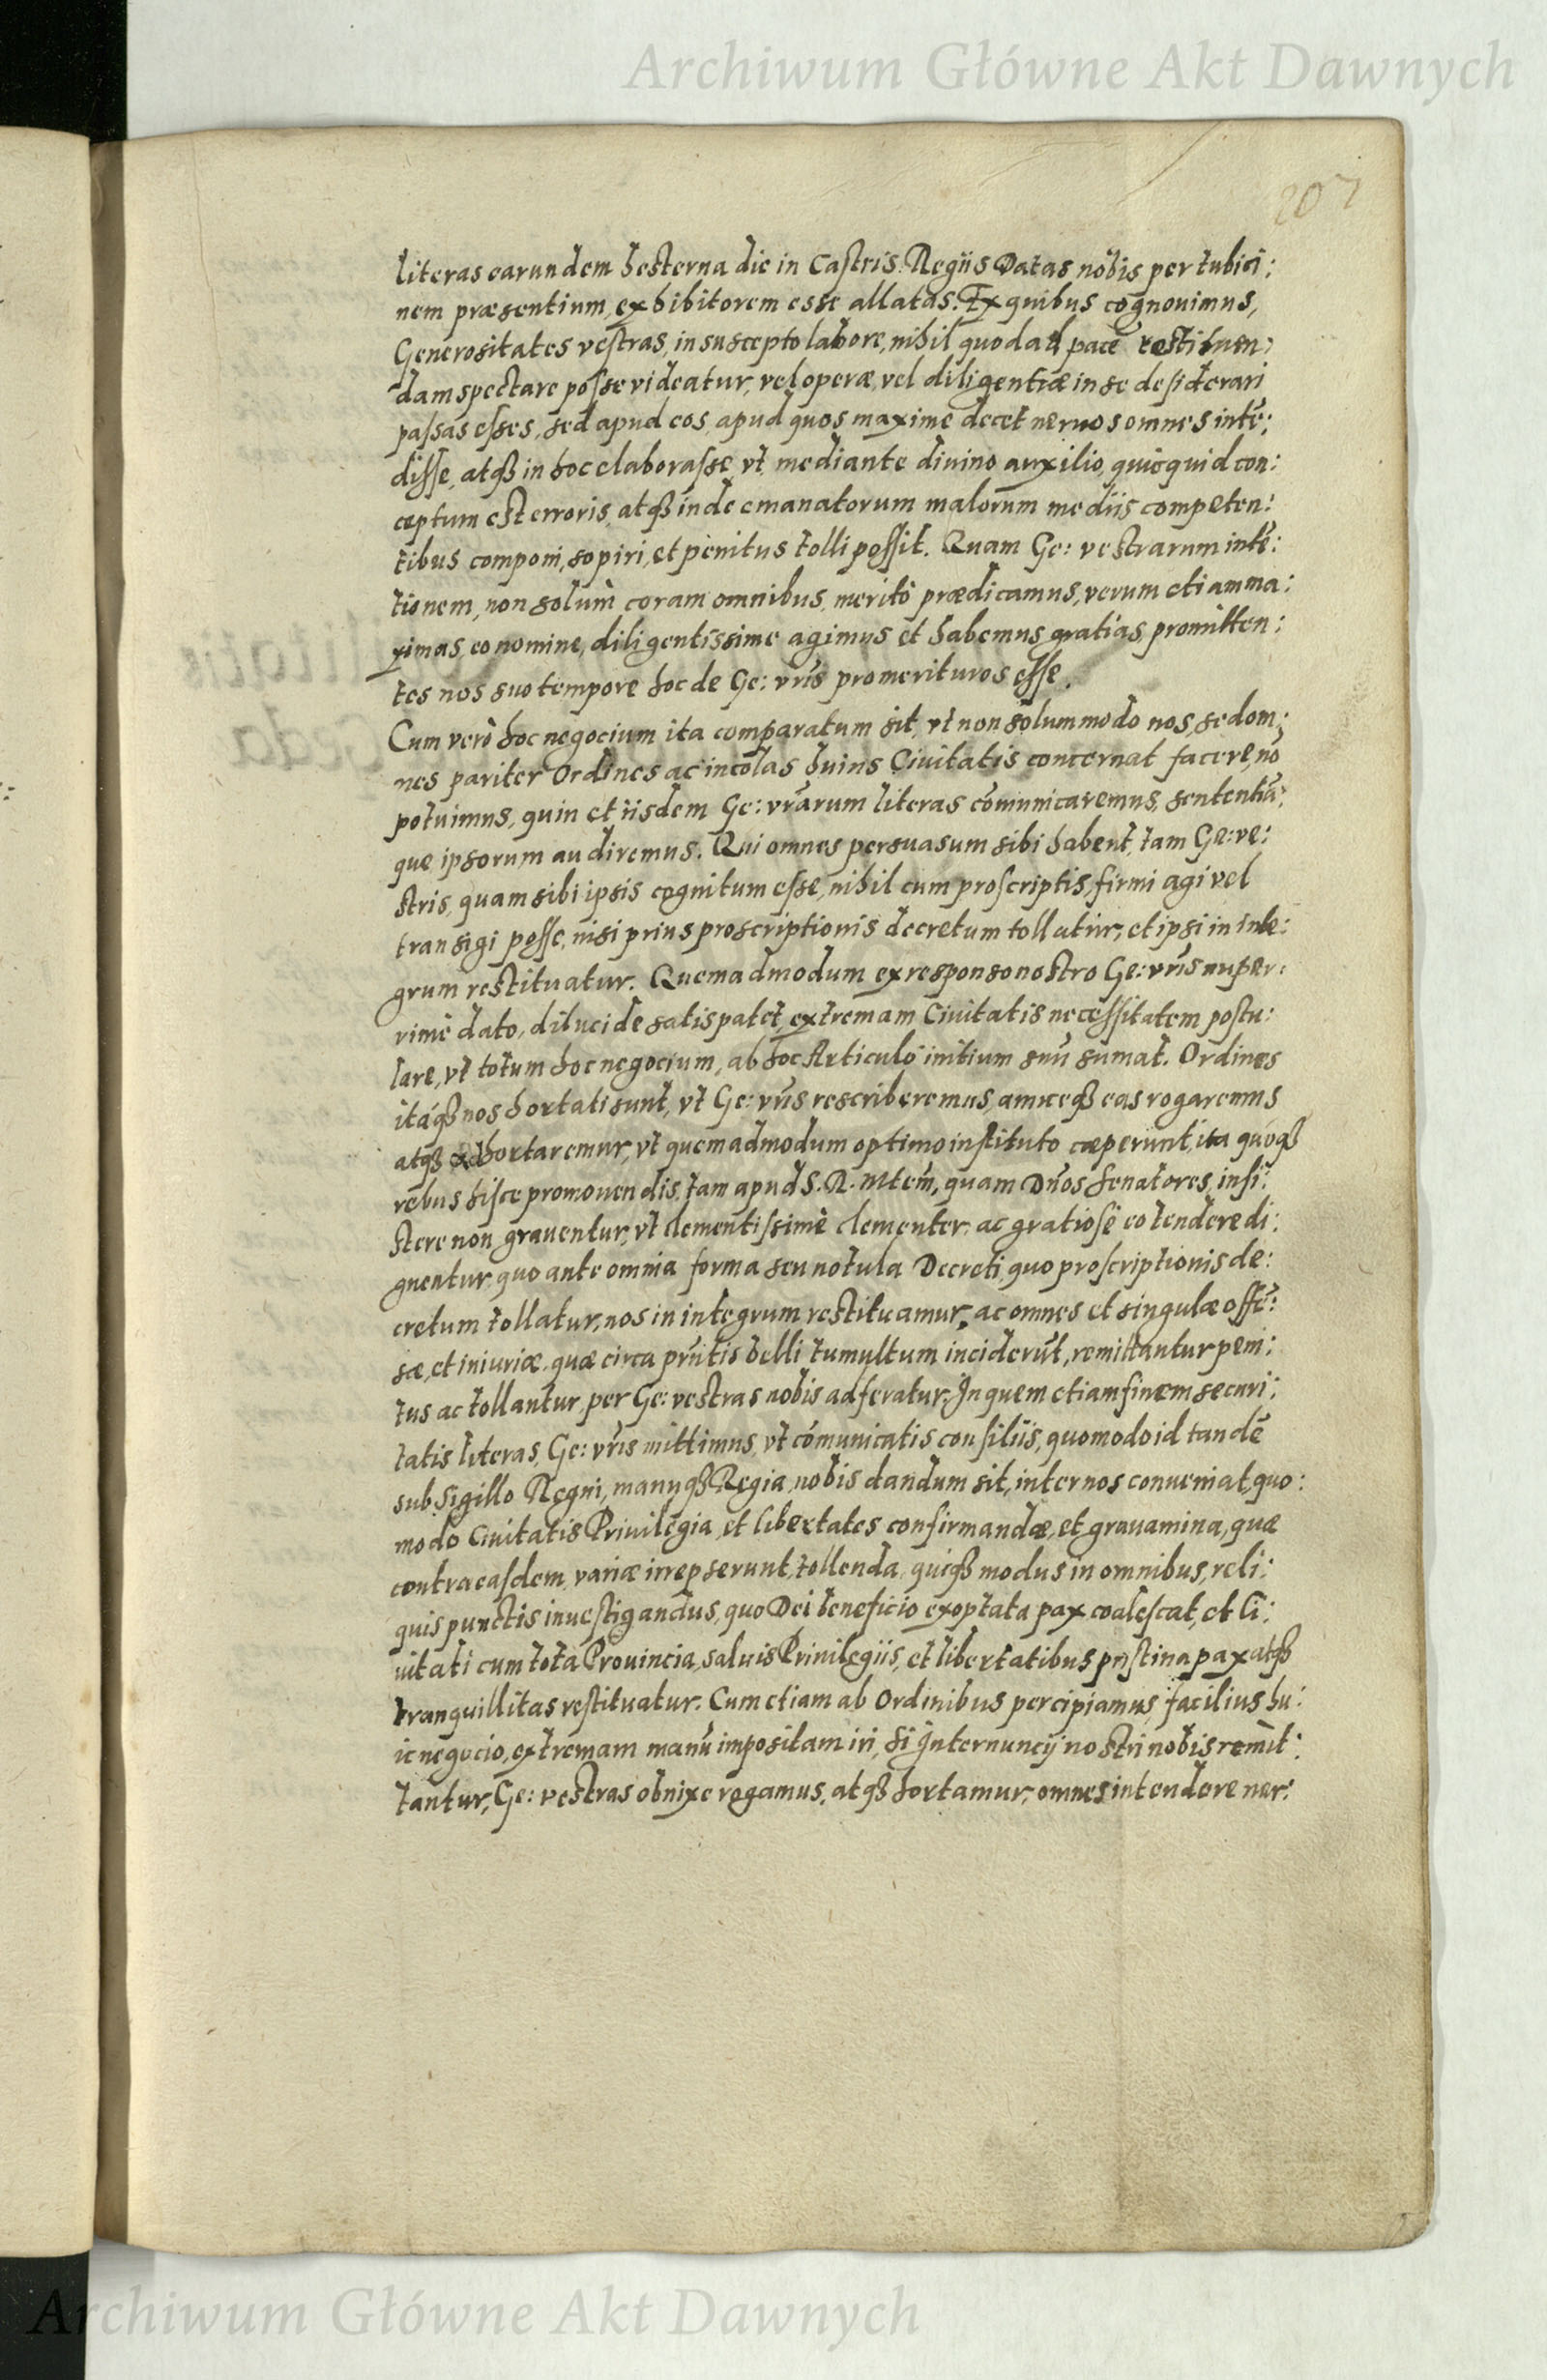 Archiwum Główne Akt Dawnych
207
literas earundem hesterna die in Castris Regiis Datas nobis per tubici:
nem præsentium exhibitorem esse allatas. Ex quibus cognouimus,
Generositates vestras, in suscepto labore, nihil quod ad pacẽ restituen:
dam spectare posse videatur, vel operæ, vel diligentiæ in se desiderari
passas esses, sed apud eos, apud quos maxime decet neruos omnes intẽ:
disse, atqȝ in hoc elaborasse, vt mediante diuino auxilio, quicquid con:
ceptum est erroris, atqȝ inde emanatorum malorum mediis competen:
tibus componi, sopiri, et penitus tolli possit. Quam Ge: vestrarum intẽ:
tionem, non solùm coram omnibus, meritò prædicamus, verum etiam ma:
ximas, eo nomine, diligentissime agimus et habemus gratias, promitten:
tes nos suo tempore hoc de Ge: vr̃is promerituros esse.
Cum verò hoc negocium ita comparatum sit, vt non solummodo nos, sed om:
nes pariter Ordines ac incolas huius Ciuitatis concernat facere, nõ
potuimus, quin et iisdem Ge: vr̃arum literas cõmunicaremus, sententiã:
que ipsorum audiremus. Qui omnes persuasum sibi habent, tam Ge: ve:
stris, quam sibi ipsis cognitum esse, nihil cum proscriptis, firmi agi vel
transigi posse, nisi prius proscriptionis decretum tollatur, et ipsi in inte:
grum restituatur. Quemadmodum ex responso nostro Ge: vr̃is nuper:
rimè dato, dilucide satis patet, extremam Ciuitatis necessitatem postu:
lare, vt totum hoc negocium, ab hoc Articulo initium suũ sumat. Ordines
itáqȝ nos hortati sunt, vt Ge: vr̃is rescriberemus, amiceqȝ eas rogaremus
atqȝ adhortaremur, vt quemadmodum optimo instituto cæperunt, ita quoqȝ
rebus hisce promouendis, tam apud S. R. Mtem̃, quam Dños Senatores, insi:
stere non grauentur, vt clementissimè clementer, ac gratiosè eo tendere di:
gnentur, quo ante omnia forma seu notula Decreti, quo proscriptionis de:
cretum tollatur, nos in integrum restituamur, ac omnes et singulæ offẽ:
sæ, et iniuriæ, quæ circa prñtis belli tumultum inciderũt, remittantur peni:
tus ac tollantur, per Ge: vestras nobis adferatur, In quem etiam finem securi:
tatis literas, Ge: vr̃is mittimus, vt cómunicatis consiliis, quomodo id tandẽ
sub Sigillo Regni, manuqȝ Regia, nobis dandum sit, inter nos conueniat, quo:
modo Ciuitatis Priuilegia, et libertates confirmandæ, et grauamina, quæ
contra easdem, variæ irrepserunt, tollenda, quiqȝ modus in omnibus, reli:
quis punctis inuestigandus, quo Dei beneficio exoptata pax coalescat, et Ci:
uitati cum tota Prouincia, saluis Priuilegiis, et libertatibus pristina pax atqȝ
tranquillitas restituatur. Cum etiam ab Ordinibus percipiamus facilius hu:
ic negocio, extremam manũ impositam iri, si Internuncij nostri nobis remit:
tantur, Ge: vestras obnixe rogamus, atqȝ hortamur, omnes intendere ner:
Archiwum Główne Akt Dawnych